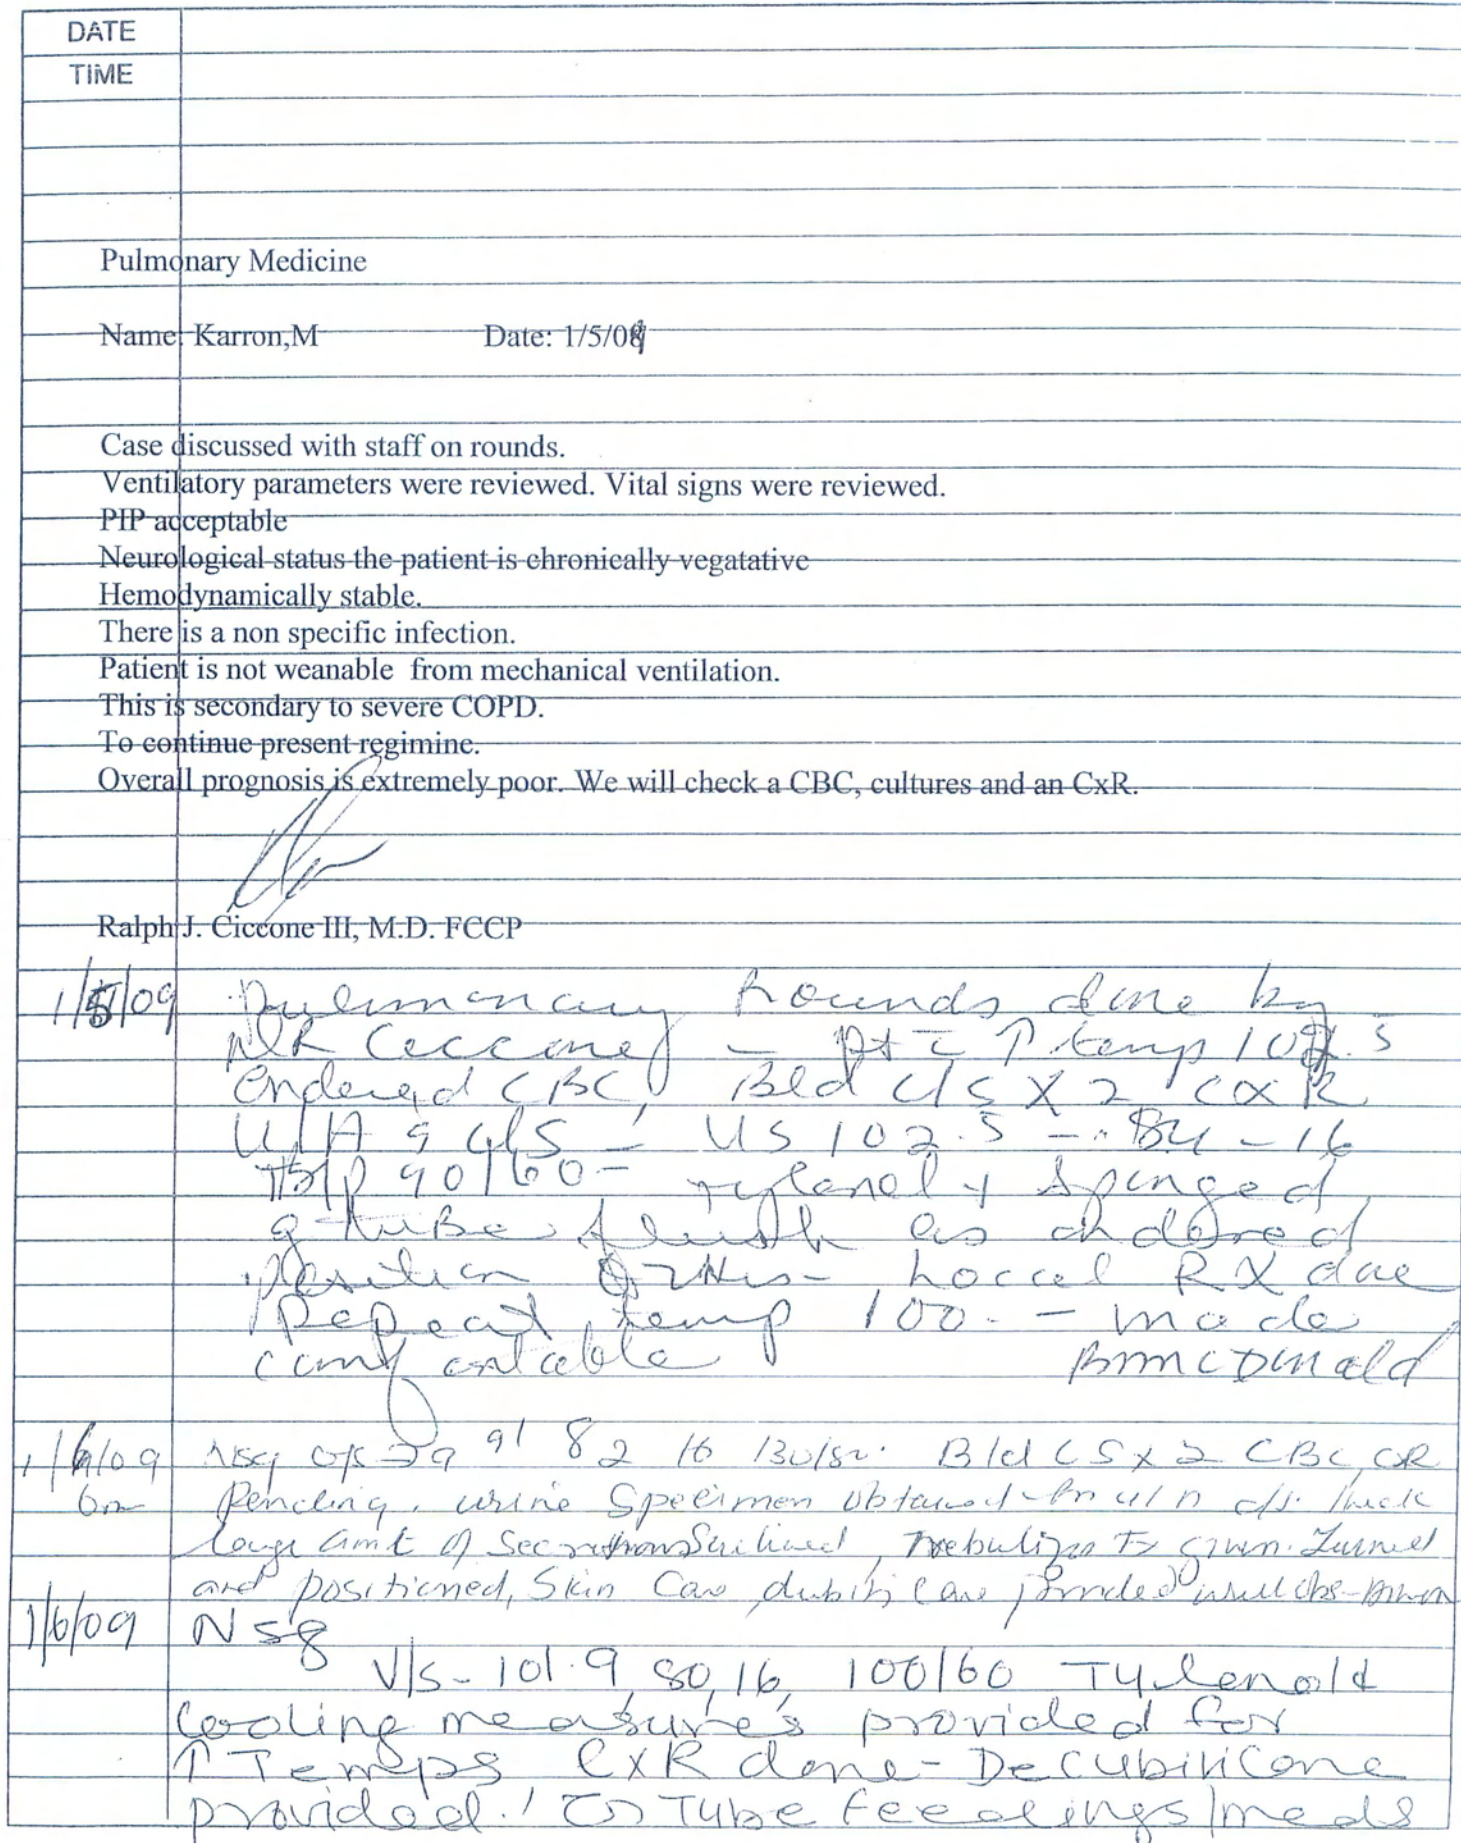 DATE
TIME
Pulmonary Medicine
Name: Karron,M Date: 1/5/09
Case discussed with staff on rounds.
Ventilatory parameters were reviewed. Vital signs were reviewed.
PIP acceptable
Neurological status the patient is chronically vegatative
Hemodynamically stable.
There is a non specific infection.
Patient is not weanable from mechanical ventilation.
This is secondary to severe COPD.
To continue present regimine.
Overall prognosis is extremely poor. We will check a CBC, cultures and an CxR.
Ralph J. Ciccone III, M.D. FCCP
1/5/09 Pulmonary Rounds done by
DR Ciccone - pt c̄ ↑ temp 102.5
Ordered CBC, Bld C/S X 2 CXR
U/A C/S - VS 102.5 - 84 - 16
B/P 90/60 - Tylenol + Sponged
g-tube flush as ordered
position - Local RX done
Repeat temp 100. - made
comfortable BMcDonald
1/6/09 Nsg 82 16 130/80. Bld CS x 2 CBC,
Pending. urine Specimen obtained for u/a c/s. thick
large amt of Secretions Suctioned, Nebulizer Tx given. Turned
and positioned, Skin Care, care provided will obs
1/6/09 Nsg
V/S - 101.9, 80, 16, 100/60 Tylenol &
Cooling measures provided for
↑ Temps CxR done - Decubiti Care
provided. Tube feedings/meds